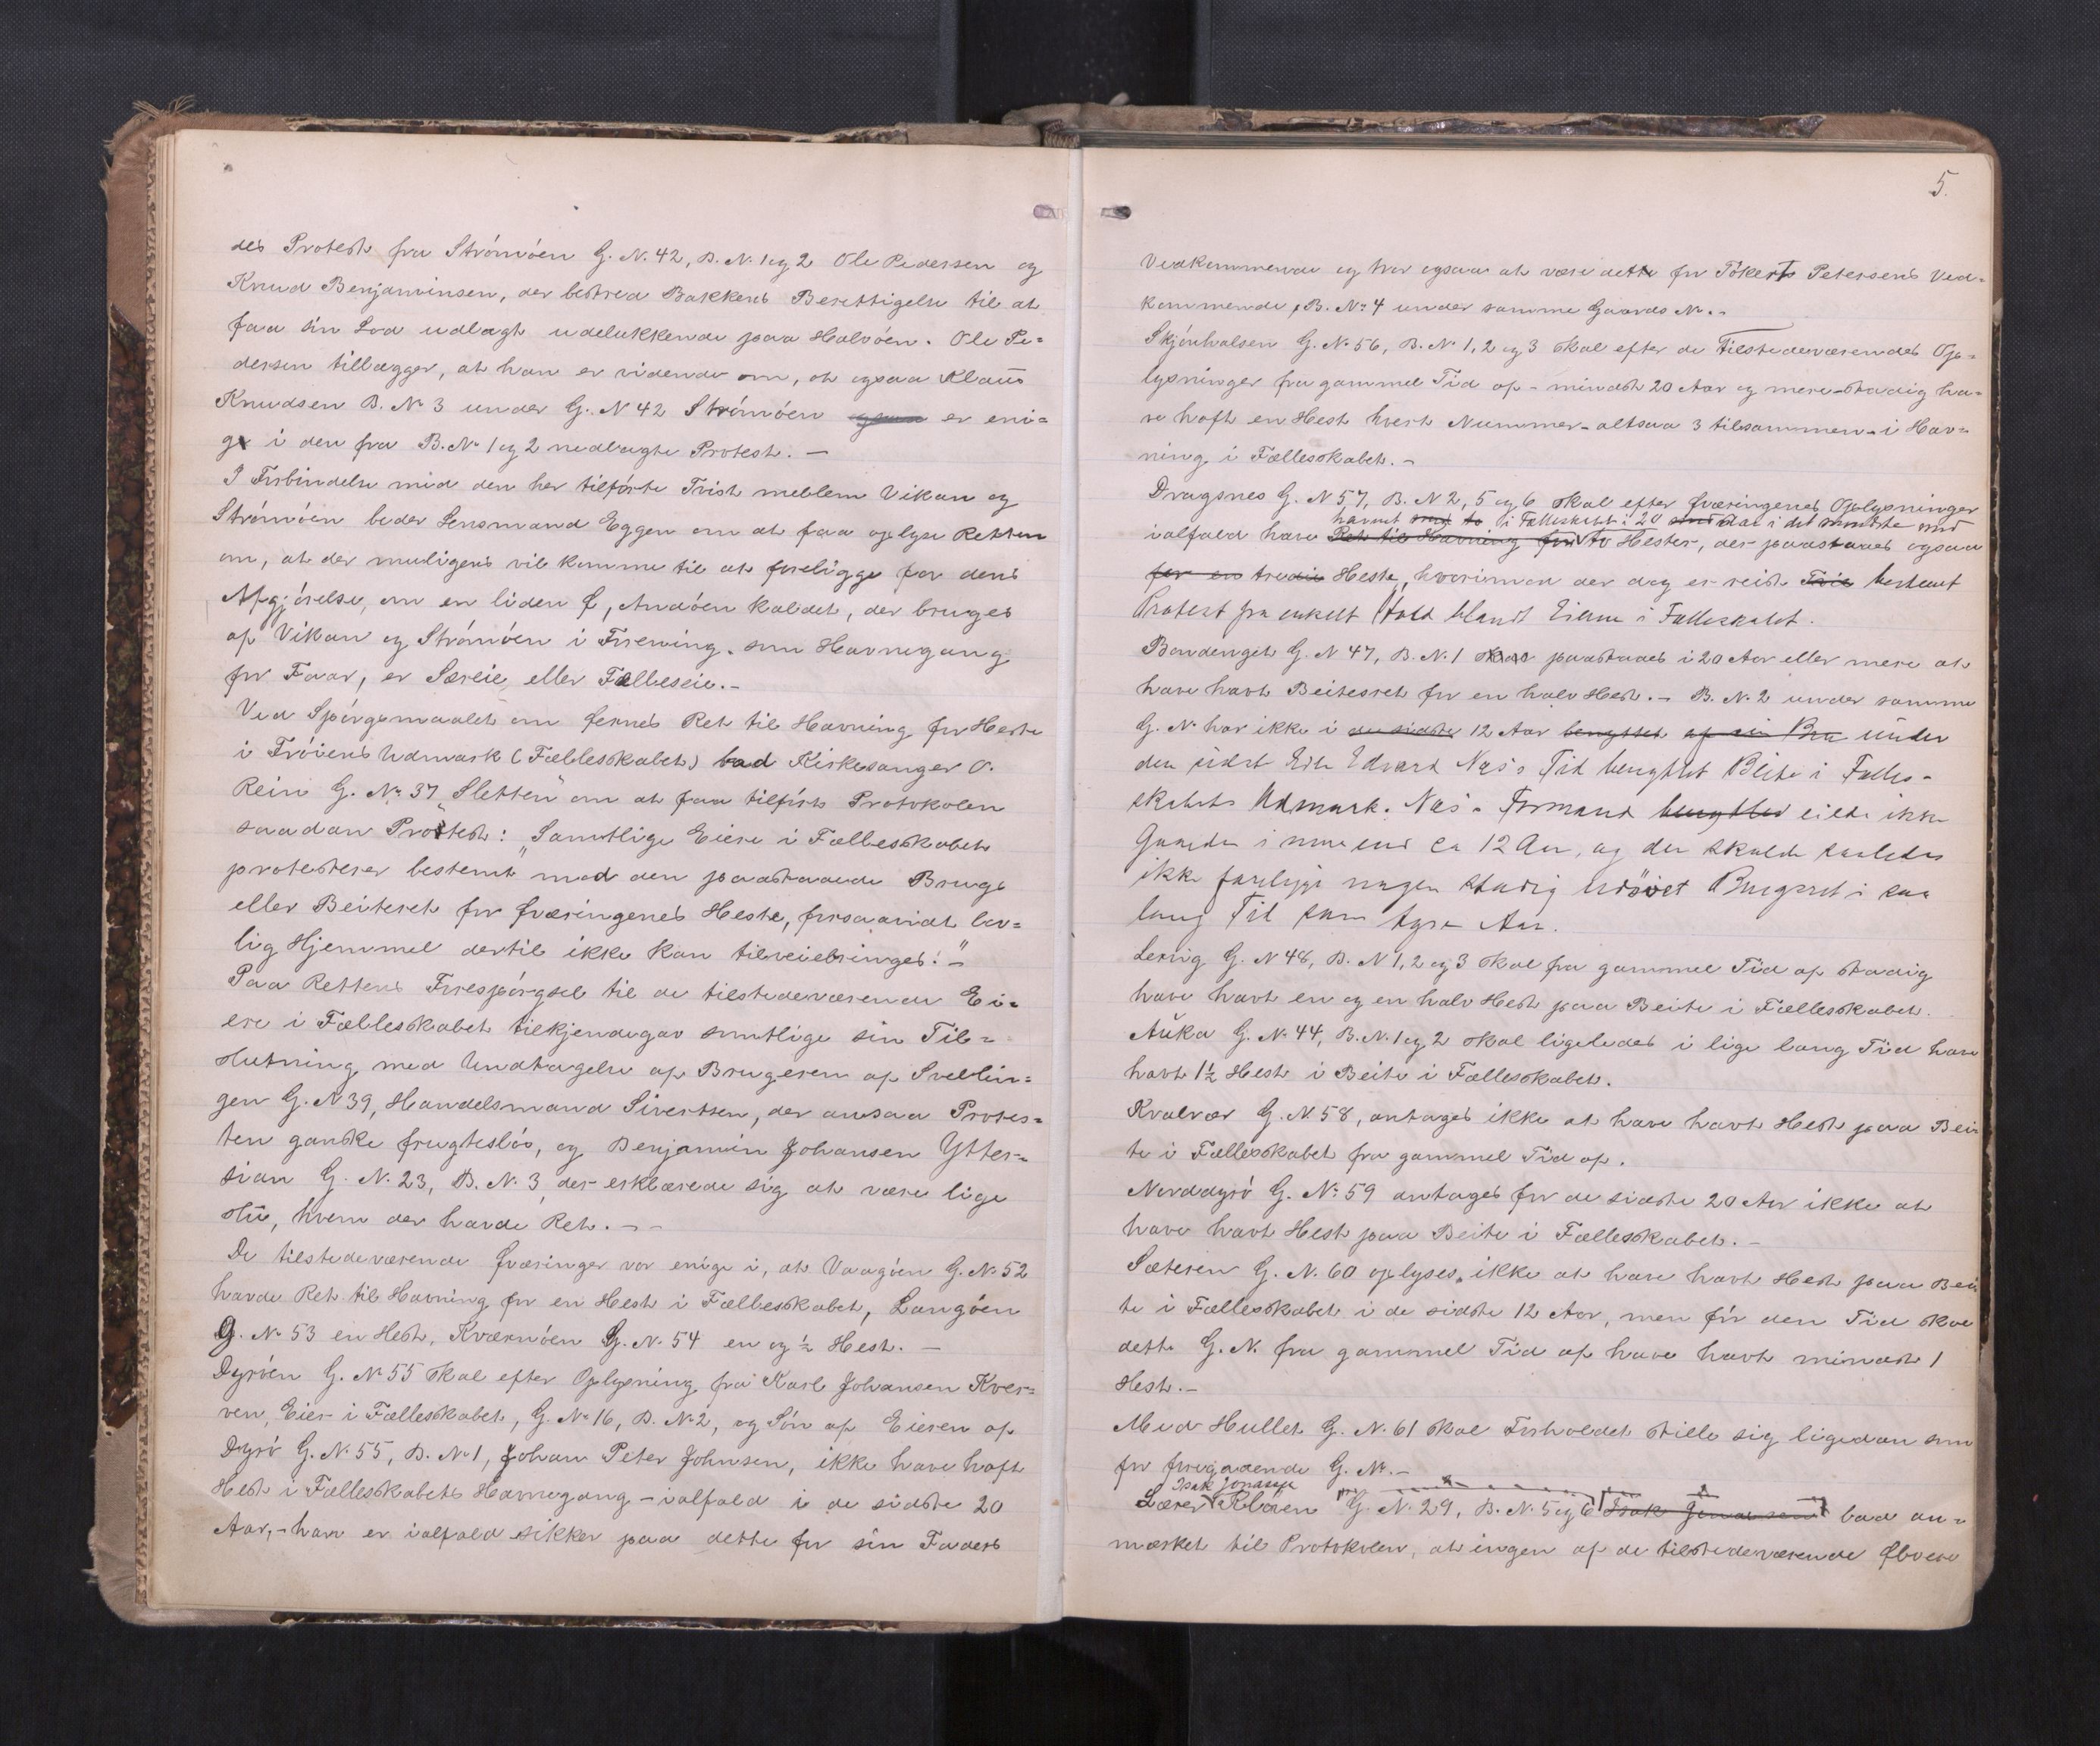 des Protest fra Strömöen G. N. 42, B. N. 1 og 2 Ole Pedersen og
Knud Benjaminsen, der bestred Bakkens Berettigelse til at
faa sin Lod udlagt udelukkende paa Halvöen. Ole Pe=
dersen tillægger, at han er vidende om, at ogsaa Klaus
Knudsen B. N. 3 under G. N 42 Strömöen er eni=
g i den fra B. N. 1 og 2 nedlagte Protest. —
I Forbindelse med den her tilförte Tvist mellem Vikan og
Strömöen beder Lensmand Eggen om at faa oplyse Retten
om, at der muligens vil komme til at foreligge for dens
Afgjörelse, om en liden Ø, Andöen kaldet, der bruges
af Vikan og Strömöen i Forening som Havnegang
for Faar, er Særeie eller Fælleseie. —
Ved Spörgsmaalet om Øernes Ret til Havning for Heste
i Fröiens Udmark (Fællesskabet) bad Kirkesanger O.
Rein G. No 37 "Sletten" om at faa tilfört Protokolen
saadan Protest: "Samtlige Eiere i Fællesskabet
protesterer bestemt mod den paastaaede Brugs
eller Beiteret for Øværingenes Heste, forsaavidt lov=
lig Hjemmel dertil ikke kan tilveiebringes." —
Paa Rettens Forespörgsel til de tilstedeværende Ei=
ere i Fællesskabet tilkjendegav samtlige sin Til=
slutning med Undtagelse af Brugeren af Svellin=
gen G. N 39, Handelsmand Sivertsen, der ansaa Protes=
ten ganske frugteslös, og Benjamin Johansen Ytter=
sian G. N. 23, B. N. 3, der erklærede sig at være lige
sæl, hvem der havde Ret. —
De tilstedeværende Øværinger var enige i, at Vaagöen G. No 52
havde Ret til Havning for en Hest i Fællesskabet, Langöen
G. No 53 en Hest, Kværnöen G. N. 54 en og ½ Hest. —
Dyröen G. No 55 skal efter Oplysning fra Karl Johansen Kver=
ven, Eier i Fællesskabet, G. No 16, B. No 2, og Sön af Eieren af
Dyrö G. N. 55, B. No 1, Johan Peter Johnsen, ikke have haft
Hest i Fællesskabets Havnegang — ialfald i de sidste 20
Aar, — han er ialfald sikker paa dette for sin Faders
5.
Vedkommende og tror ogsaa at være dette for Petersens Ved=
kommende, B. No 4 under samme Gaards No. —
Skjönhalsen G. No 56, B. No 1, 2 og 3 skal efter de Tilstedeværendes Op=
lysninger fra gammel Tid af — mindst 20 Aar og mere — stadig ha=
ve haft en Hest hvert Nummer — altsaa 3 tilsammen — i Hav=
ning i Fællesskabet. —
Dragsnes G. N 57, B. N 2, 5 og 6 skal efter Øværingenes Oplysninger
havnet i Fællesskabet i 20 Aar i det mindste med
ialfald have Ret til Havning for to Hester, der paastaaes ogsaa
for en tredie Hest, hvorimod der dog er reist bestemt
Protest fra enkelt Hold blandt Eierne i Fællesskabet.
Bondenget G. N 47, B. N. 1 paastaaes i 20 Aar eller mere at
have havt Beitesret for en halv Hest. — B. N. 2 under samme
G. No har ikke i de sidste 12 Aar benyttet under
den sidst Eier Edvard Næs's Tid benyttet Beite i Fælles=
skabets Udmark. Næs's Formand benyttet eiede ikke
Gaarden i mere end ca 12 Aar, og der skulde saaledes
ikke foreligge nogen stadig udövet Brugsret i saa
lang Tid som tyve Aar.
Lervig G. N 48, B. N 1, 2 og 3 skal fra gammel Tid af stadig
have havt en og en halv Hest paa Beite i Fællesskabet.
Auka G. N. 44, B. N. 1 og 2 skal ligeledes i lige lang Tid have
havt 1½ Hest i Beite i Fællesskabet.
Kvalvær G. N. 58, antages ikke at have havt Hest paa Bei
te i Fællesskabet fra gammel Tid af.
Norddyrö G. No 59 antages for de sidste 20 Aar ikke at
have havt Hest paa Beite i Fællesskabet. —
Sæteren G. N. 60 oplyses ikke at have havt Hest paa Bei
te i Fællesskabet i de sidste 12 Aar, men för den Tid skal
dette G. N. fra gammel Tid af have havt mindst 1
Hest. —
Med Hullet G. N. 61 skal Forholdet stille sig ligedan som
for foregaaende G. No. —
Isak Jonassen
Lærer G. N. 29, B. N. 5 og 6 Isak Jonassen bad an=
mærket til Protokolen, at ingen af de tilstedeværende Øboere